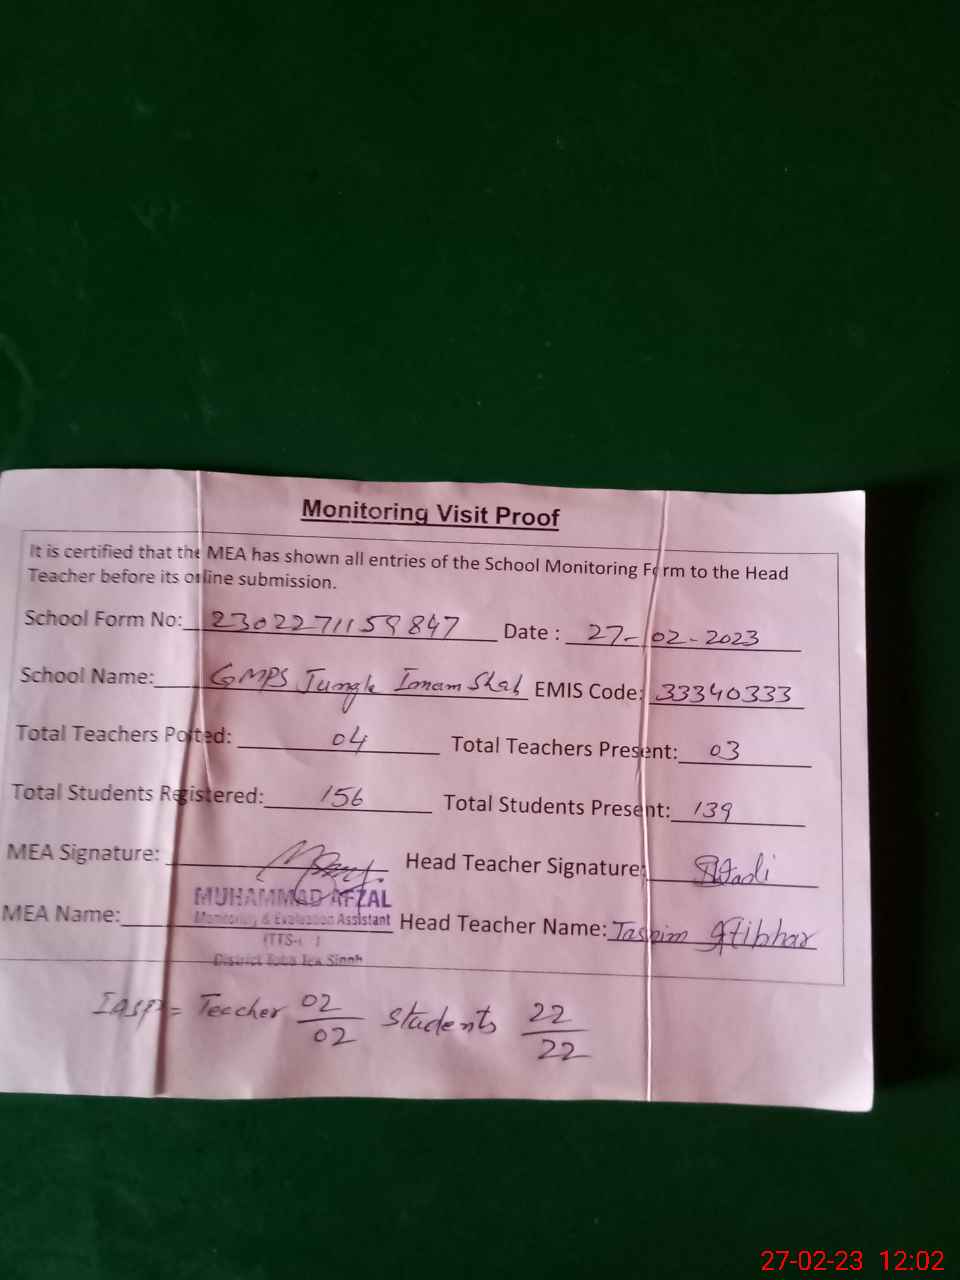 Monitoring Visit Proof
It is certified that the MEA has shown all entries of the School Monitoring Form to the Head
Teacher before its online submission.
School Form No: 2302271159847 Date : 27-02-2023
School Name: GMPS Jungle Imam Shah EMIS Code: 33340333
Total Teachers Posted: 04 Total Teachers Present: 03
Total Students Registered: 156 Total Students Present: 139
MEA Signature: Head Teacher Signature:
MUHAMMAD AFZAL
Monitoring & Evaluation Assistant
MEA Name: Head Teacher Name: Tasnim
District Toba Tek Singh
Teacher 02/02 students 22/22
27-02-23 12:02